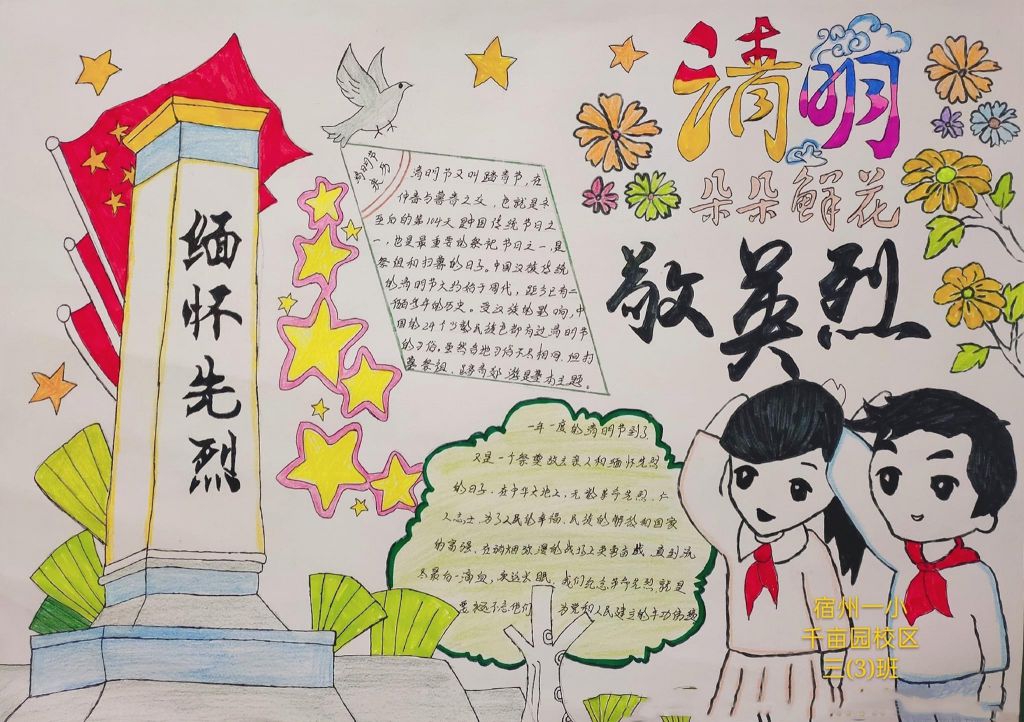 清明
朵朵鲜花
敬英烈
缅怀先烈
清明节
清明节又叫踏青节，在
仲春与暮春之交，也就是冬
至后的第104天 是中国传统节日之
一，也是最重要的祭祀节日之一，是
祭祖和扫墓的日子。中国汉族传统
的清明节大约始于周代，距今已有二
千
受汉族的影响，中
国的24个少数民族也都有过清明节
的习俗。虽然各地习俗不尽相同，但扫
墓祭祖、踏青郊游是基本主题。
一年一度的清明节到了，
又是一个祭奠故去亲人和缅怀先烈
的日子，在中华大地上，无数革命先烈、仁
人志士，为了人民的幸福、民族的解放和国家
的富强，在硝烟弥漫的战场上英勇奋战，直到流
尽最后一滴血，永远长眠。我们纪念革命先烈，就是
要永远不忘他们 为党和人民建立的丰功伟绩
宿州一小
千亩园校区
三(3)班